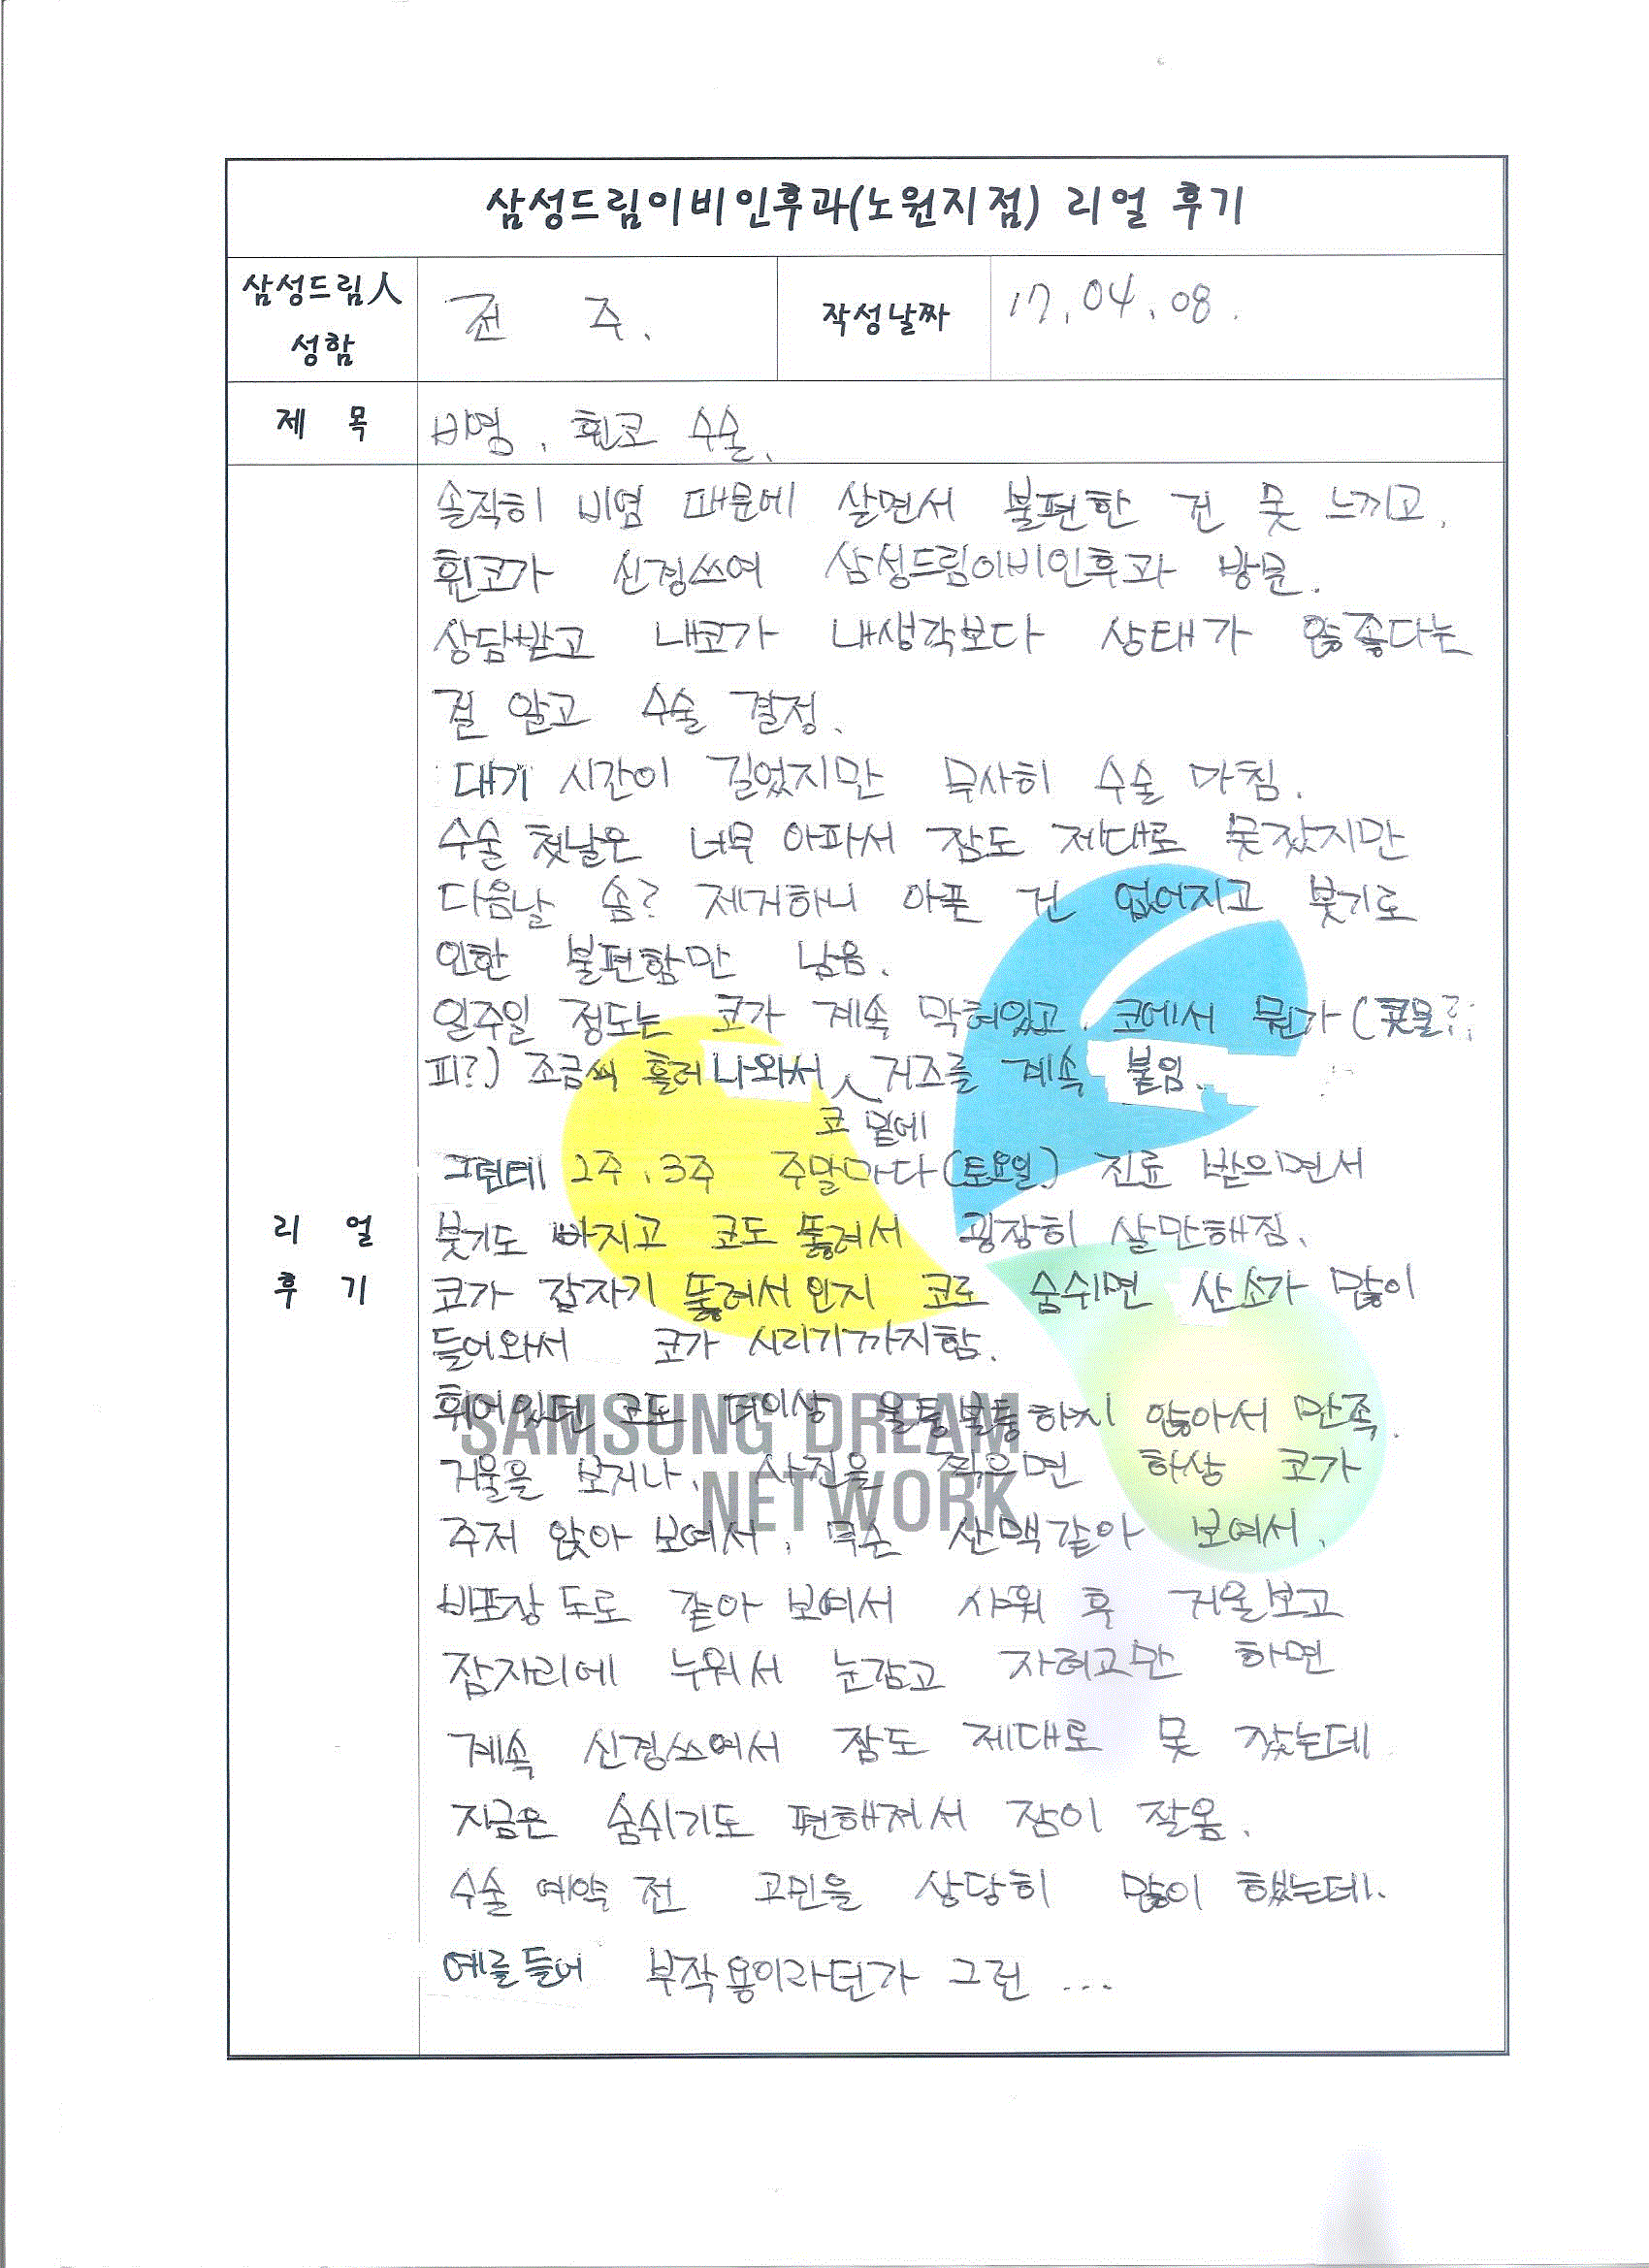 삼성드림이비인후과(노원지점) 리얼 후기
삼성드림人
성함
전 주.
작성날짜
17. 04. 08.
제 목
비염, 휜코 수술.
솔직히 비염 때문에 살면서 불편한 건 못 느끼고,
휜코가 신경쓰여 삼성드림이비인후과 방문.
상담받고 내코가 내생각보다 상태가 않좋다는
걸 알고 수술 결정.
대기 시간이 길었지만 무사히 수술 마침.
수술 첫날은 너무 아파서 잠도 제대로 못잤지만
다음날 솜? 제거하니 아픈 건 없어지고 붓기로
인한 불편함만 남음.
일주일 정도는 코가 계속 막혀있고, 코에서 뭔가 (콧물?
피?) 조금씩 흘러나와서 거즈를 계속 붙임.
코 밑에
그런데 2주, 3주 주말마다 (토요일) 진료 받으면서
리 얼
후 기
붓기도 빠지고 코도 뚫려서 굉장히 살만해짐.
코가 갑자기 뚫려서인지 코로 숨쉬면 산소가 많이
들어와서 코가 시리기까지함.
휘어있던 코도 더이상 울퉁불퉁하지 않아서 만족.
거울을 보거나, 사진을 찍으면 항상 코가
주저 앉아 보여서, 무슨 산맥같아 보여서,
비포장 도로 같아 보여서 샤워 후 거울보고
잠자리에 누워서 눈감고 자려고만 하면
계속 신경쓰여서 잠도 제대로 못 잤는데
지금은 숨쉬기도 편해져서 잠이 잘옴.
수술 예약 전 고민을 상당히 많이 했는데.
예를들어 부작용이라던가 그런 ...
SAMSUNG DREAM
NETWORK